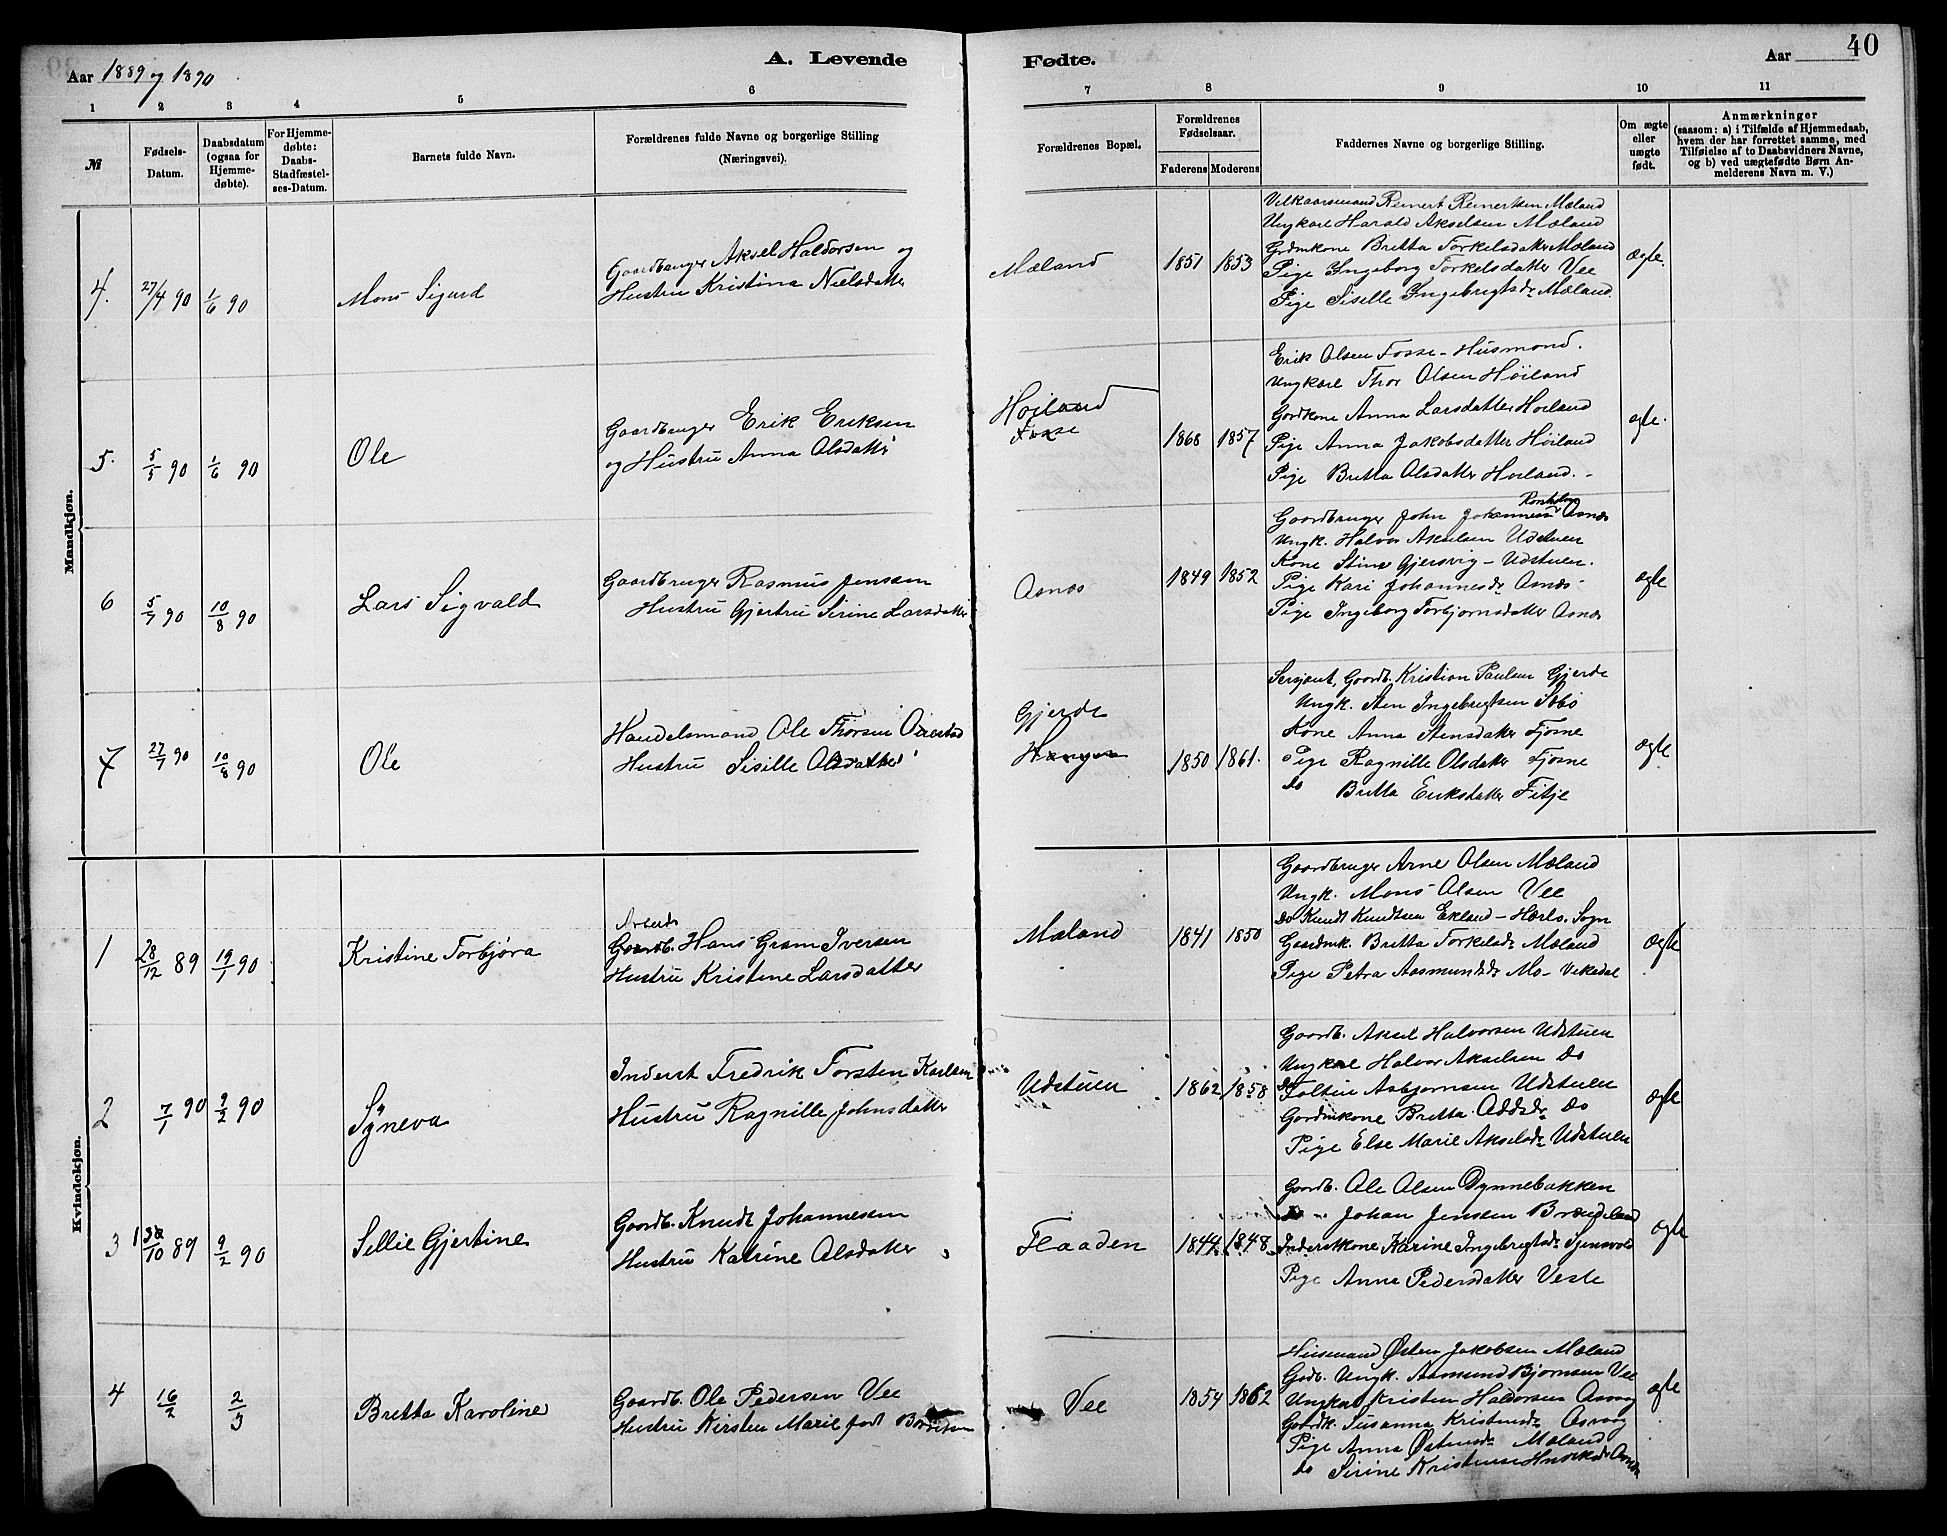 Aar 1889 og 1890
A. Levende
Fødte.
Aar
40
1 2 3 4 5 6 7 8 9 10 11
№
Fødsels-
Datum.
Daabsdatum
(ogsaa for
Hjemme-
døbte).
For Hjemme-
døbte:
Daabs-
Stadfæstel-
ses-Datum.
Barnets fulde Navn.
Forældrenes fulde Navne og borgerlige Stilling
(Næringsvei).
Forældrenes Bopæl.
Forældrenes
Fødselsaar.
Faderens Moderens
Faddernes Navne og borgerlige Stilling.
Om ægte
eller
uægte
født.
Anmærkninger
(saasom: a) i Tilfælde af Hjemmedaab,
hvem der har forrettet samme, med
Tilføielse af to Daabsvidners Navne,
og b) ved uægtefødte Børn An-
melderens Navn m. V.)
Mandkjøn.
4. 27/4 90 1/6 90
Mons Sigurd
Gaardbruger Aksel Haldorsen og
Hustru Kristina Nielsdatter
Mæland
1851 1853
Vilkaarsmand Reinert Reinertsen Mæland
Ungkarl Harald Akselsen Mæland
Grdmkone Britta Torkelsdatter Mæland
Pige Ingeborg Torkelsdatter Vee
Pige Siselle Ingebrigtsdr Mæland
ægte.
5. 5/5 90 1/6 90
Ole
Gaardbruger Erik Eriksen
og Hustru Anna Olsdatter
Høiland
Fosse
1868 1857
Erik Olsen Fosse - Husmand.
Ungkarl Thor Olsen Høiland
Gordkone Anna Larsdatter Høiland
Pige Anna Jakobsdatter Høiland
Pige Britta Olsdatter Høiland. -
ægte.
6 5/7 90 10/8 90
Lars Sigvald
Gaardbruger Rasmus Jensen
Hustru Gjertru Sirine Larsdatter
Osnes
1849 1852
Gaardbruger John Johannessen Osnes
Ungk. Halvor Akselsen Udstuen
Kone Stine Gjersvig - Udstuen.
Pige Kari Johannesdr Osnes
Pige Ingeborg Torbjornsdatter Osnes
ægte
7 27/7 90 10/8 90
Ole
Handelsmand Ole Thorsen
Hustru Sisille Olsdatter
Gjerde
1850 1861.
Sersjant, Gaardb. Kristian Paulsen Gjerde
Ungk. Sten Ingebrigtsen Sebø
Kone Anna Stensdatter Fjøsne
Pige Ragnille Olsdatter Fjøsne
Do Britta Eriksdatter Fitje
ægte
Kvindekjøn.
1 28/12 89 19/1 90
Kristine Torbjøra
Arbeid.
Gaardb. Hans Gram Iversen
Hustru Kristine Larsdatter
Mæland
1841 1850
Gaardbruger Arne Olsen Mæland
Ungk. Mons Olsen Vee
Do Knudt Knudtsen Ekland - Hærls. Sogn
Gaardmk. Britta Torkelsdr Mæland
Pige Petra Aasmundsdr Mo - Vikedal
ægte
2 7/1 90 9/2 90
Syneva
Inderst Fredrik Torsten Karlsen
Hustru Ragnille Johnsdatter
Udstuen
1862 1858
Gaardb. Aksel Halvorsen Udstuen
Ungkarl Halvor Akselsen Do
Do Foltin Asbjørnsen Udstuen
Gordmkone Britta Addsdr Do
Pige Else Marie Akselsdr Udstuen
ægte
3 /10 89 9/2 90
Sellie Gjertine
Gaardb. Knudt Johannesen
Hustru Katrine Olsdatter
Flaaden
1844 1848
Gaardb. Ole Olsen Dynnebakken
Do - Johan Jensen
Inderstkone Karine Ingebrigtsdr
Pige Anna Pedersdatter Vesle
ægte
4 16/2 2/3
Britta Karoline
Gaardb. Ole Pedersen Vee
Hustru Kirsten Marie født
Vee
1854 1862
Husmand Østen Jakobsen Mæland
Gaab. Ungk. Aasmund Bjørnsen Vee
Ungkarl Kristen Haldorsen Osvog
Gaardk. Susanna Kristensdr Osvog
Pige Anna Østensdr Mæland
Do Sirine Kristense
ægte